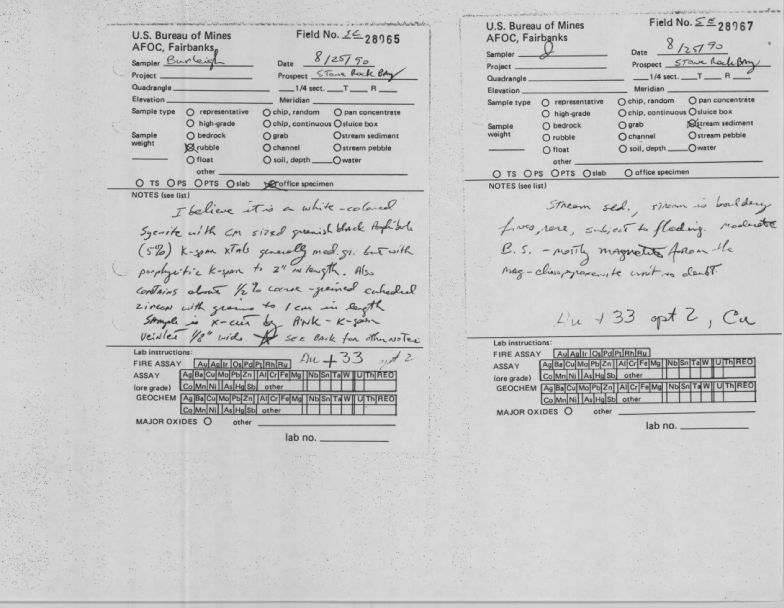 U.S. Bureau of Mines
AFOC, Fairbanks
Field No. 28965
Sampler Burleigh
Date 8/25/90
Project
Prospect Stone Rock Bay
Quadrangle
1/4 sect. T R
Elevation
Meridian
Sample type
representative
chip, random
pan concentrate
high-grade
chip, continuous
sluice box
Sample weight
bedrock
grab
stream sediment
rubble
channel
stream pebble
float
soil, depth
water
other
TS PS PTS slab office specimen
NOTES (see list)
I believe it is a white-colored
syenite with cm sized greenish black Amphibole
(5%) K-spar xtals generally med. gr. but with
porphyritic K-spar to 2" in length. Also
contains about 1/2% coarse-grained euhedral
zircon with grains to 1 cm in length
Sample is x-cut by pink-K-spar
veinlet 1/8" wide. see back for other notes
Lab instructions: Au + 33 opt 2
FIRE ASSAY Au Ag Ir Os Pd Pt Rh Ru
ASSAY Ag Ba Cu Mo Pb Zn Al Cr Fe Mg Nb Sn Ta W U Th REO
(ore grade) Co Mn Ni As Hg Sb other
GEOCHEM Ag Ba Cu Mo Pb Zn Al Cr Fe Mg Nb Sn Ta W U Th REO
Co Mn Ni As Hg Sb other
MAJOR OXIDES other
lab no.
U.S. Bureau of Mines
AFOC, Fairbanks
Field No. 28967
Sampler
Date 8/25/90
Project
Prospect Stone Rock Bay
Quadrangle
1/4 sect. T R
Elevation
Meridian
Sample type
representative
chip, random
pan concentrate
high-grade
chip, continuous
sluice box
Sample weight
bedrock
grab
stream sediment
rubble
channel
stream pebble
float
soil, depth
water
other
TS PS PTS slab office specimen
NOTES (see list)
Stream sed., stream is bouldery
fines rare, subject to flooding. moderate
B.S. - mostly magnetite from the
mag-clinopyroxenite unit no doubt.
Au + 33 opt 2, Cu
Lab instructions:
FIRE ASSAY Au Ag Ir Os Pd Pt Rh Ru
ASSAY Ag Ba Cu Mo Pb Zn Al Cr Fe Mg Nb Sn Ta W U Th REO
(ore grade) Co Mn Ni As Hg Sb other
GEOCHEM Ag Ba Cu Mo Pb Zn Al Cr Fe Mg Nb Sn Ta W U Th REO
Co Mn Ni As Hg Sb other
MAJOR OXIDES other
lab no.